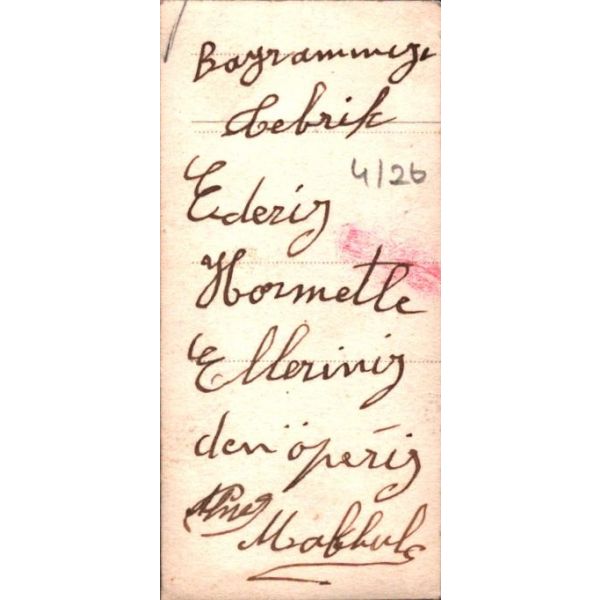 Bayramınızı
Tebrik
4/26
Ederiz
Hormetle
Elleriniz
den öperiz
Makbule